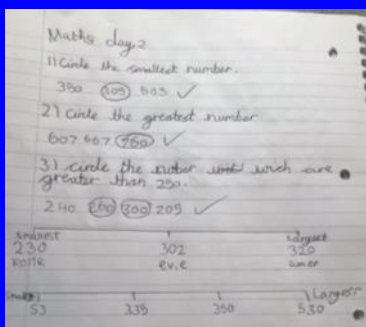 Maths day 2
1) Circle the smallest number.
350 305 503
2) Circle the greatest number
607 667 760
3) circle the which are
greater than 250.
240 260 300 205
smallest largest
230 302 320
evie
Largest
53 335 350 530